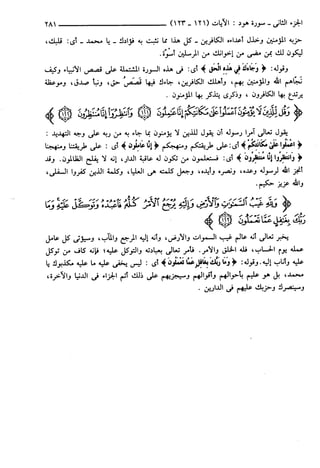 الجزء الثانى - سورة هود : الآيات (١٢١ - ١٢٣)
٢٨١
حزبه المؤمنين وخذل أعداءه الكافرين - كل هذا مما نثبت به فؤادك - يا محمد - أى: قلبك،
ليكون لك بمن مضى من إخوانك من المرسلين أسوة.
وقوله: ﴿ وجاءك في هذه الحق ﴾ أى: فى هذه السورة المشتملة على قصص الأنبياء وكيف
نجاهم الله والمؤمنين بهم، وأهلك الكافرين، جاءك فيها قصص حق، ونبأ صدق، وموعظة
يرتدع بها الكافرون ، وذكرى يتذكر بها المؤمنون .
﴿ وقل للذين لا يؤمنون اعملوا على مكانتكم إنا عاملون (١٢١) وانتظروا إنا منتظرون (١٢٢) ﴾
يقول تعالى آمرا رسوله أن يقول للذين لا يؤمنون بما جاء به من ربه على وجه التهديد :
﴿ اعملوا على مكانتكم ﴾ أى: على طريقتكم ومنهجكم ﴿ إنا عاملون ﴾ أى : على طريقتنا ومنهجنا
﴿ وانتظروا إنا منتظرون ﴾ أى: فستعلمون من تكون له عاقبة الدار، إنه لا يفلح الظالمون. وقد
أنجز الله لرسوله وعده، ونصره وأيده، وجعل كلمته هى العليا، وكلمة الذين كفروا السفلى،
والله عزيز حكيم.
﴿ ولله غيب السموات والأرض وإليه يرجع الأمر كله فاعبده وتوكل عليه وما
ربك بغافل عما تعملون (١٢٣) ﴾
يخبر تعالى أنه عالم غيب السموات والأرض، وأنه إليه المرجع والمآب، وسيؤتى كل عامل
عمله يوم الحساب، فله الخلق والأمر. فأمر تعالى بعبادته والتوكل عليه؛ فإنه كاف من توكل
عليه وأناب إليه. وقوله: ﴿ وما ربك بغافل عما تعملون ﴾ أى : ليس يخفى عليه ما عليه مكذبوك يا
محمد، بل هو عليم بأحوالهم وأقوالهم وسيجزيهم على ذلك أتم الجزاء فى الدنيا والآخرة،
وسينصرك وحزبك عليهم فى الدارين .